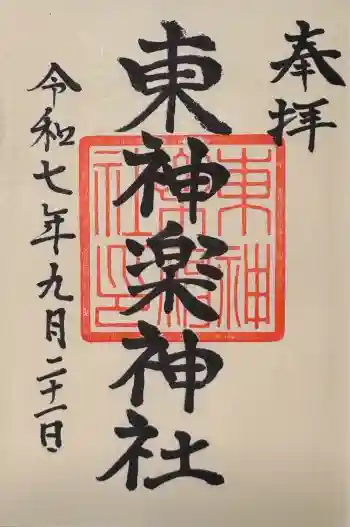 奉拝
東神楽神社
東神
楽神
社印
令和七年九月二十一日